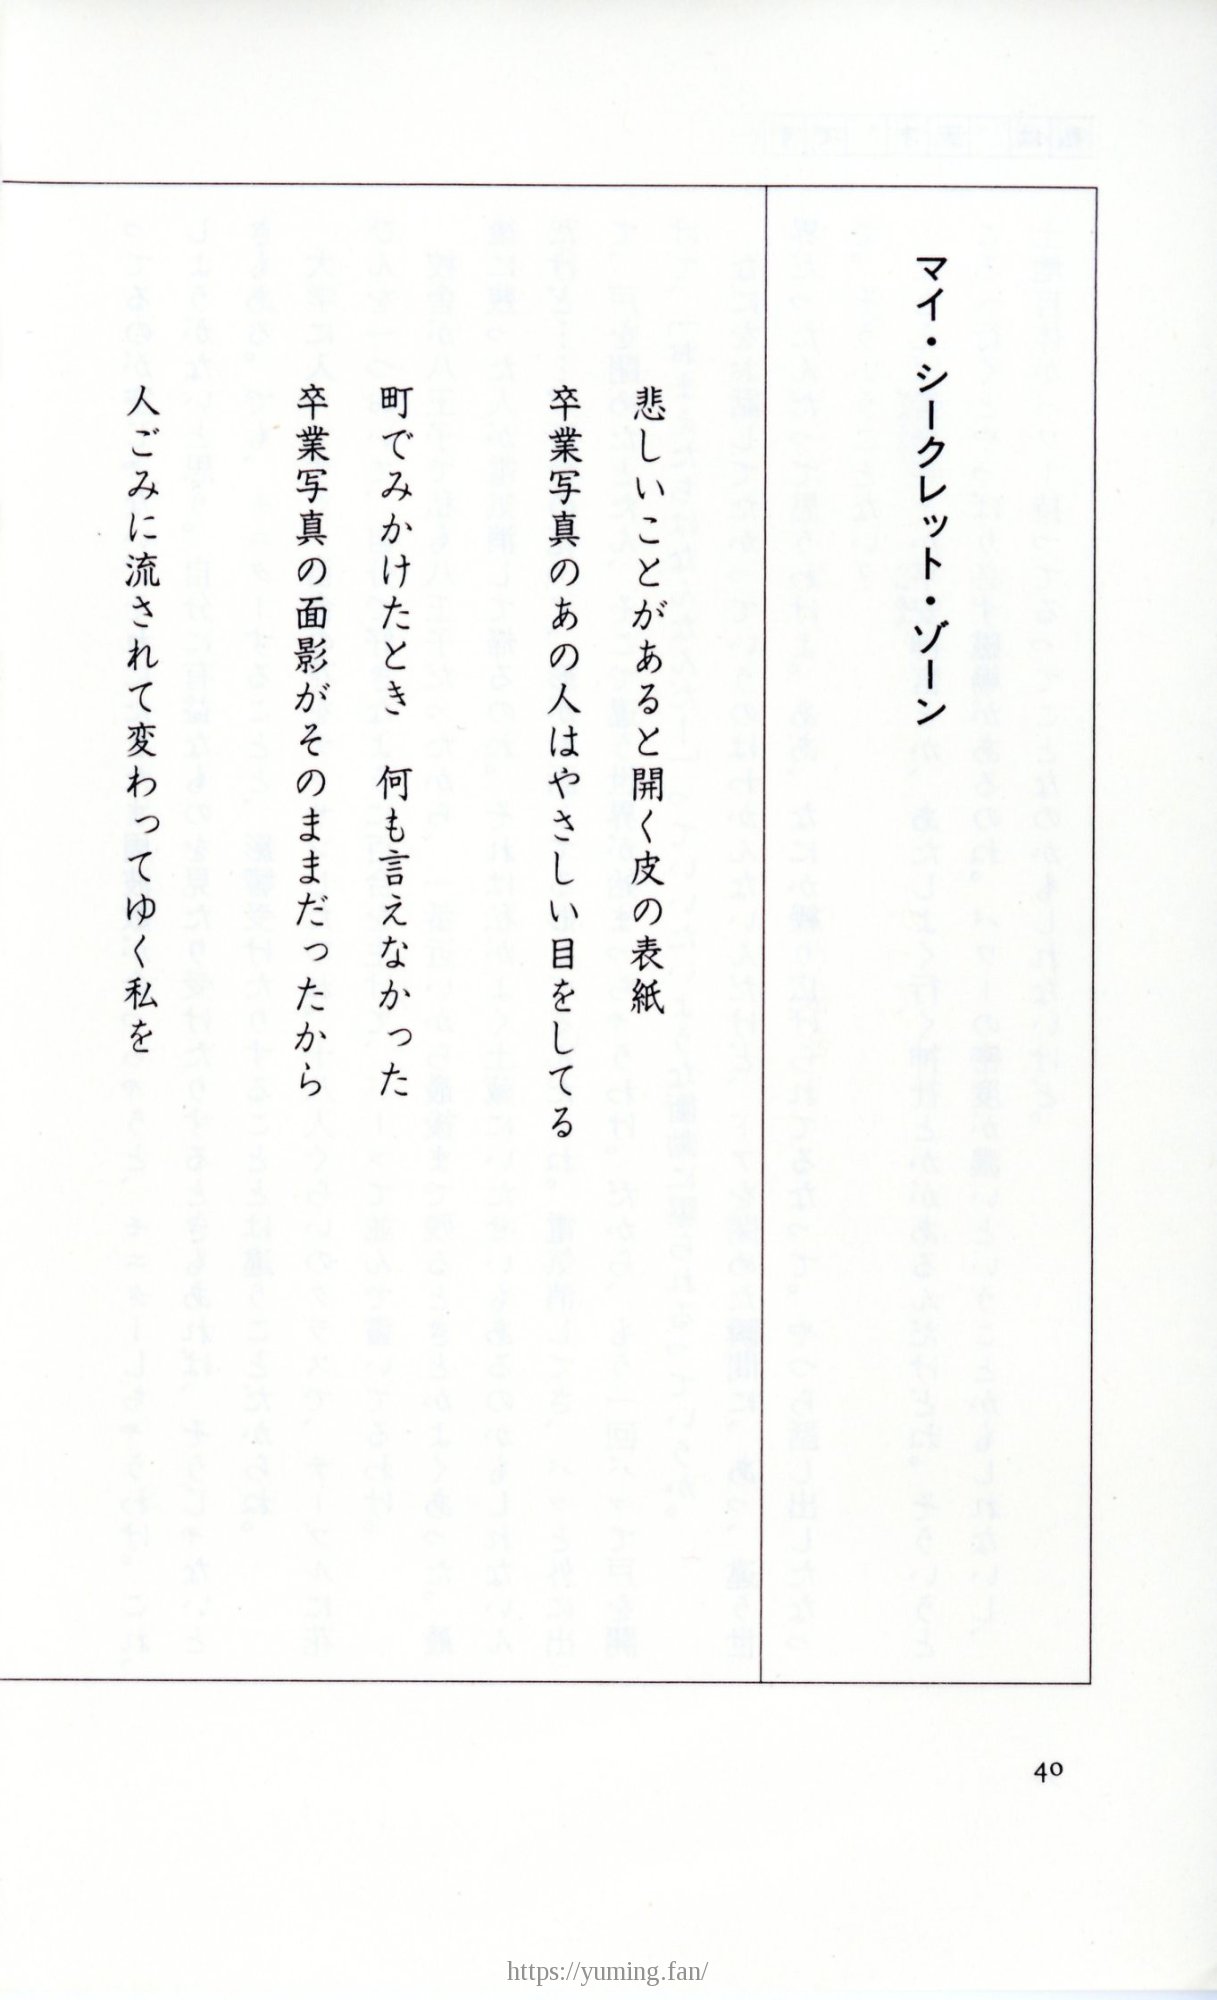 マイ・シークレット・ゾーン
悲しいことがあると開く皮の表紙
卒業写真のあの人はやさしい目をしてる
町でみかけたとき　何も言えなかった
卒業写真の面影がそのままだったから
人ごみに流されて変わってゆく私を
40
https://yuming.fan/